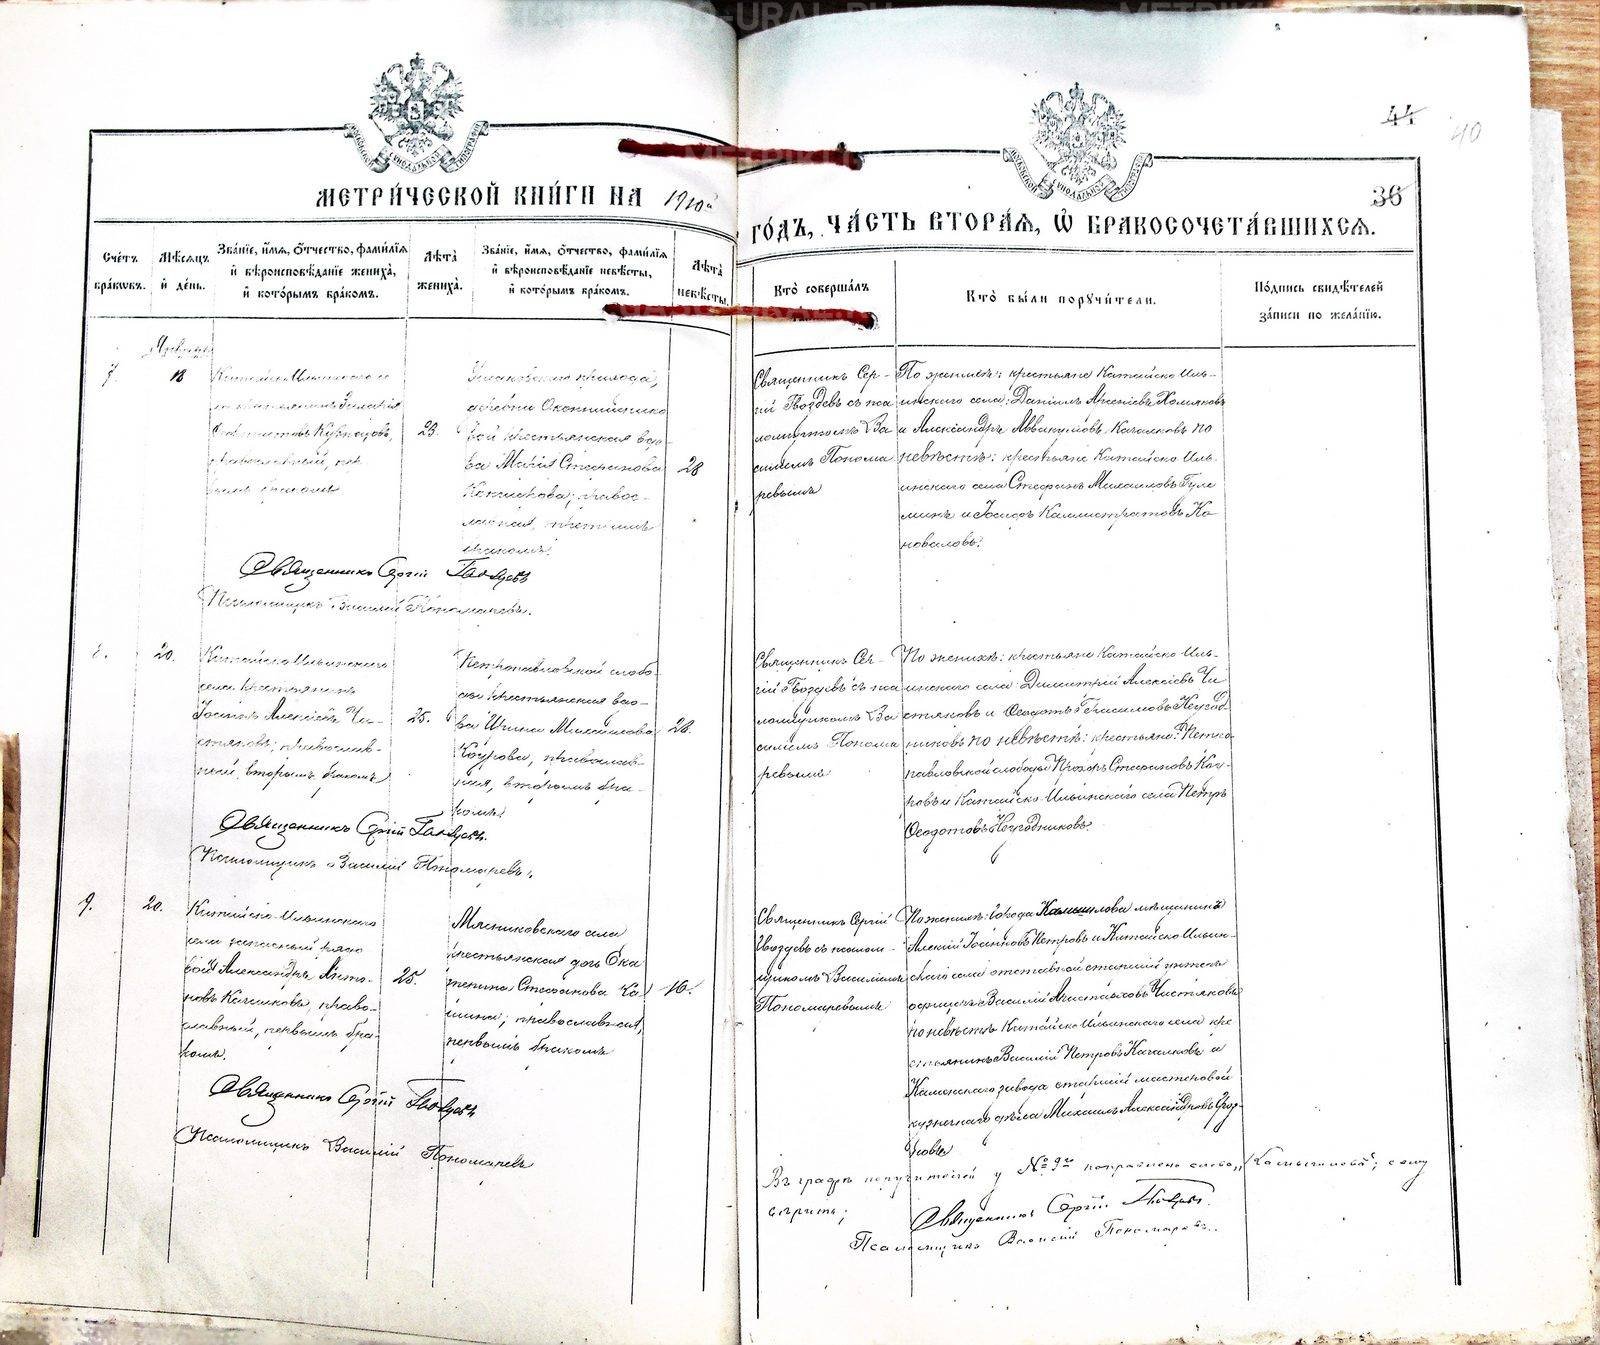 44
40
36
МЕТРИ́ЧЕСКОЙ КНИ́ГИ НА 1910й
ГО́ДЪ, ЧА́СТЬ ВТОРА́Я, Ѽ БРАКОСОЧЕТА́ВШИХСЯ.
Сче́тъ бра́ковъ.
Мѣ́сяцъ и҆ де́нь.
Зва́нїе, и҆́мя, о҆́тчество, фами́лїя
и҆ вѣроисповѣ́данїе жениха̀,
и҆ кото́рымъ бра́комъ.
Лѣ́та жениха̀.
Зва́нїе, и҆́мя, о҆́тчество, фами́лїя
и҆ вѣроисповѣ́данїе невѣ́сты,
и҆ кото́рымъ бра́комъ.
Лѣ́та невѣ́сты.
Кто̀ соверша́лъ
Кто̀ бы́ли поручи́тели.
По́дпись свидѣ́телей
за́писи по жела́нїю.
7.
Января
18
Китайско-Ильинскаго се
Кузнецовъ,
православный, пер
вымъ бракомъ
23.
прихода,
деревни
крестьянская вдо-
ва Марія Стефанова
православ-
ная,
бракомъ.
28
Священникъ Сер-
гій Гвоздевъ съ пса
ломщикомъ Ва
силіемъ Понома
ревымъ
По женихѣ: крестьяне Китайско Иль-
инскаго села: Даніилъ Арсеніевъ Хомяковъ
и Александръ Аввакумовъ Качалковъ по
невѣстѣ: крестьяне Китайско Иль-
инскаго села Стефанъ Михаиловъ Гуле
минъ и Іосифъ Каллистратовъ Ко
новаловъ.
Священникъ Сергій Гвоздевъ
Псаломщикъ Василій Пономаревъ.
8.
20.
Китайско Ильинскаго
села крестьянинъ
Іоаннъ Алексіевъ Чи-
стяковъ; православ-
ный, вторымъ бракомъ
25.
Петропавловской слобо-
ды крестьянская вдо-
ва Ирина Михаилова
Коурова, православ-
ная, вторымъ бра-
комъ
28.
Священникъ Сер-
гій Гвоздевъ съ пса
ломщикомъ Ва
силіемъ Понома
ревымъ
По женихѣ: крестьяне Китайско Иль-
инскаго села Димитрій Алексіевъ Чи
стяковъ и Ѳеодотъ Герасимовъ Неугод
никовъ по невѣстѣ: крестьяне: Петро-
павловской слободы Прохоръ Стефановъ Коу-
ровъ и Китайско Ильинскаго села Петръ
Ѳеодотовъ Неугодниковъ.
Священникъ Сергій Гвоздевъ.
Псаломщикъ Василій Пономаревъ.
9.
20.
Китайско Ильинскаго
села запасный рядо
вой Александръ Анто-
новъ Качалковъ, право-
славный, первымъ бра-
комъ.
25.
Мясниковскаго села
крестьянская дочь Ека
терина Стефанова Ка
шина; православная,
первымъ бракомъ
16.
Священникъ Сергій
Гвоздевъ съ псалом-
щикомъ Василіемъ
Пономаревымъ
По женихѣ: города Камышлова мѣщанинъ
Алексій Іоанновъ Петровъ и Китайско Ильин-
скаго села отставной старшій унтеръ
офицеръ Василій Аристарховъ Чистяковъ
по невѣстѣ Китайско Ильинскаго села кре
стьянинъ Василій Петровъ Качалковъ и
Каменскаго завода старшій мастеровой
кузнечнаго дѣла Михаилъ Александровъ
Священникъ Сергій Гвоздевъ
Псаломщикъ Василій Пономаревъ
Въ графѣ поручителей у № 9го поправлено слово „Камышлова“; сему
вѣрить;
Священникъ Сергій Гвоздевъ.
Псаломщикъ Василій Пономаревъ.